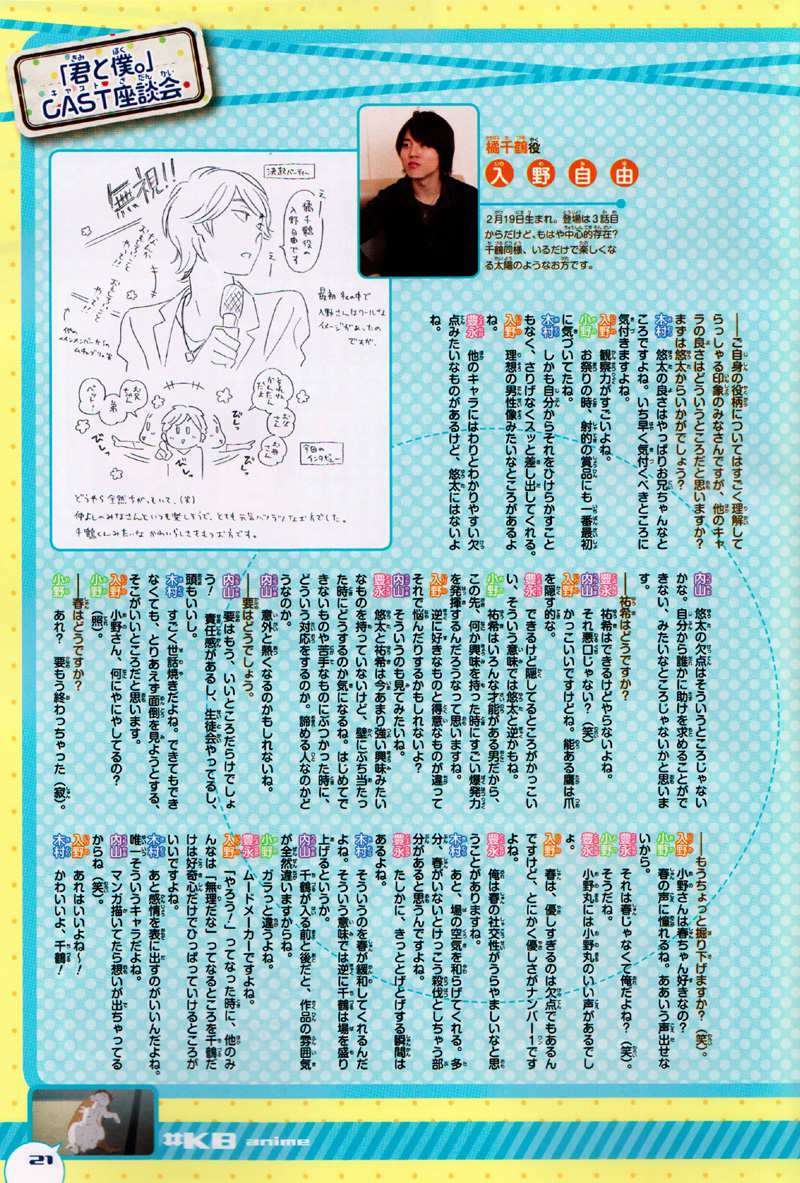 「君と僕。」
CAST座談会
橘千鶴役
入野自由
2月19日生まれ。登場は3話目
からだけど、もはや中心的存在?
千鶴同様、いるだけで楽しくな
る太陽のようなお方です。
無視!!
決起パーティー
橘千鶴役の
入野自由です
最初 私の中で
入野さんはクールな
イメージがあったの
ですが、
今日の
インタビュー
どうやら全然ちがっていて、(笑)
仲よしのみなさんといつも楽しそうで、とても元気ハツラツな方でした。
千鶴くんみたいなかわいらしさをもつお方です。
――ご自身の役柄についてはすごく理解して
らっしゃる印象のみなさんですが、他のキャ
ラの良さはどういうところだと思いますか?
まずは悠太からいかがでしょう?
木村 悠太の良さはやっぱりお兄ちゃんなと
ころですよね。いち早く気付くべきところに
気付きますよね。
入野 観察力がすごいよね。
小野 お祭りの時、射的の賞品にも一番最初
に気づいてたね。
木村 しかも自分からそれをひけらかすこと
もなく、さりげなくスッと差し出してくれる。
入野 理想の男性像みたいなところがあるよ
ね。
豊永 他のキャラにはわりとわかりやすい欠
点みたいなものがあるけど、悠太にはないよ
ね。
内山 悠太の欠点はそういうところじゃない
かな。自分から誰かに助けを求めることがで
きない、みたいなところじゃないかと思いま
す。
――祐希はどうですか?
豊永 祐希はできるけどやらないよね。
入野 それ悪口じゃない?(笑)
内山 かっこいいですけどね。能ある鷹は爪
を隠す的な。
豊永 できるけど隠してるところがかっこい
い、そういう意味では悠太と逆かもね。
小野 祐希はいろんな才能がある男だから、
この先、何か興味を持った時にすごい爆発力
を発揮するんだろうなって思いますね。
入野 逆に好きなものと得意なものが違って
それで悩んだりするかもしれないよ?
内山 そういうのも見てみたいね。
豊永 悠太と祐希は今あまり強い興味みたい
なものを持っていないけど、壁にぶち当たっ
た時にどうするのか気になるね。はじめてで
きないものや苦手なものにぶつかった時に、
どういう対応をするのか。諦める人なのかど
うなのか。
内山 意外と熱くなるのかもしれないね。
――要はどうでしょう。
内山 要はもう、いいところだらけでしょ
う!責任感があるし、生徒会やってるし、
頭もいいし。
木村 すごく世話焼きだよね。できてもでき
なくても、とりあえず面倒を見ようとする、
そこがいいところだと思います。
入野 小野さん、何にやにやしてるの?
小野 (照)。
――春はどうですか?
小野 あれ? 要もう終わっちゃった(寂)。
――もうちょっと掘り下げますか?(笑)。
入野 小野さんは春ちゃん好きなの?
小野 春の声に憧れるね。ああいう声出せな
いから。
豊永 それは春じゃなくて俺だよね?(笑)。
小野 そうだね。
豊永 小野丸には小野丸のいい声があるでし
ょ。
入野 春は、優しすぎるのは欠点でもあるん
ですけど、とにかく優しさがナンバー1です
よね。
豊永 俺は春の社交性がうらやましいなと思
うことがありますね。
木村 あと、場の空気を和らげてくれる。多
分、春がいないとけっこう殺伐としちゃう部
分があると思うんですよね。
豊永 たしかに、きっととげとげする瞬間は
あるよね。
木村 そういうのを春が緩和してくれるんだ
よね。そういう意味では逆に千鶴は場を盛り
上げるというか。
内山 千鶴が入る前と後だと、作品の雰囲気
が全然違いますからね。
小野 ガラっと違うよね。
豊永 ムードメーカーですよね。
入野 「やろう!」ってなった時に、他のみ
んなは「無理だな」ってなるところを千鶴だ
けは好奇心だけでひっぱっていけるところが
いいですよね。
木村 あと感情を表に出すのがいいんだよね。
唯一そういうキャラだよね。
内山 マンガ描いてたら想いが出ちゃってる
からね(笑)。
入野 あれはいいよね〜!
木村 かわいいよ、千鶴!
#KB anime
21